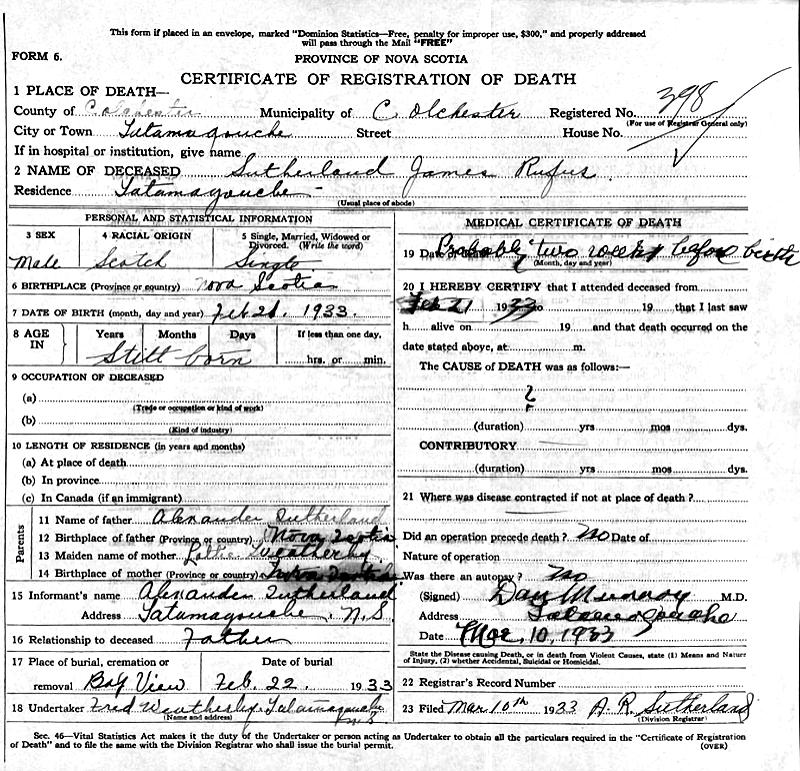 This form if placed in an envelope, marked "Dominion Statistics—Free, penalty for improper use, $300," and properly addressed
will pass through the Mail "FREE"
FORM 6.
PROVINCE OF NOVA SCOTIA
CERTIFICATE OF REGISTRATION OF DEATH
1 PLACE OF DEATH—
County of Colchester Municipality of Colchester Registered No. 398
(For use of Registrar General only)
City or Town Tatamagouche Street House No.
If in hospital or institution, give name
2 NAME OF DECEASED Sutherland James Rufus
Residence Tatamagouche
(Usual place of abode)
PERSONAL AND STATISTICAL INFORMATION
3 SEX 4 RACIAL ORIGIN 5 Single, Married, Widowed or Divorced. (Write the word)
Male Scotch Single
6 BIRTHPLACE (Province or country) Nova Scotia
7 DATE OF BIRTH (month, day and year) Feb 21. 1933.
8 AGE IN Years Months Days If less than one day,
Still-born hrs. or min.
9 OCCUPATION OF DECEASED
(a)
(Trade or occupation or kind of work)
(b)
(Kind of industry)
10 LENGTH OF RESIDENCE (in years and months)
(a) At place of death
(b) In province
(c) In Canada (if an immigrant)
Parents
11 Name of father Alexander Sutherland
12 Birthplace of father (Province or country) Nova Scotia
13 Maiden name of mother Weatherby
14 Birthplace of mother (Province or country) Nova Scotia
15 Informant's name Alexander Sutherland
Address Tatamagouche. N.S.
16 Relationship to deceased Father
17 Place of burial, cremation or Date of burial
removal Bay View Feb. 22. 1933
18 Undertaker Fred Weatherby Tatamagouche
N S
(Name and address)
MEDICAL CERTIFICATE OF DEATH
19 Date of Probably two weeks before birth
(Month, day and year)
20 I HEREBY CERTIFY that I attended deceased from
Feb 21 1933 to 19 that I last saw
h alive on 19 and that death occurred on the
date stated above, at m.
The CAUSE of DEATH was as follows:—
?
(duration) yrs mos dys.
CONTRIBUTORY
(duration) yrs mos dys.
21 Where was disease contracted if not at place of death?
Did an operation precede death? No Date of
Nature of operation
Was there an autopsy? No
(Signed) Dan Murray M.D.
Address Tatamagouche
Date Mar. 10, 1933
State the Disease causing Death, or in death from Violent Causes, state (1) Means and Nature
of Injury, (2) whether Accidental, Suicidal or Homicidal.
22 Registrar's Record Number
23 Filed Mar 10th 1933 A. R. Sutherland
(Division Registrar)
Sec. 46—Vital Statistics Act makes it the duty of the Undertaker or person acting as Undertaker to obtain all the particulars required in the "Certificate of Registration
of Death" and to file the same with the Division Registrar who shall issue the burial permit.
(OVER)